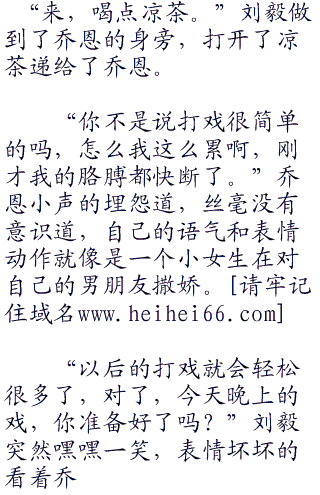 “来，喝点凉茶。”刘毅做
到了乔恩的身旁，打开了凉
茶递给了乔恩。
“你不是说打戏很简单
的吗，怎么我这么累啊，刚
才我的胳膊都快断了。”乔
恩小声的埋怨道，丝毫没有
意识道，自己的语气和表情
动作就像是一个小女生在对
自己的男朋友撒娇。[请牢记
住域名www.heihei66.com]
“以后的打戏就会轻松
很多了，对了，今天晚上的
戏，你准备好了吗？”刘毅
突然嘿嘿一笑，表情坏坏的
看着乔